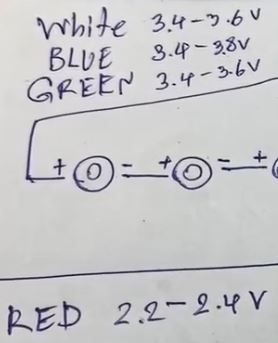 White 3.4-3.6V
BLUE 3.4-3.8V
GREEN 3.4-3.6V
+ - + - +
RED 2.2-2.4V